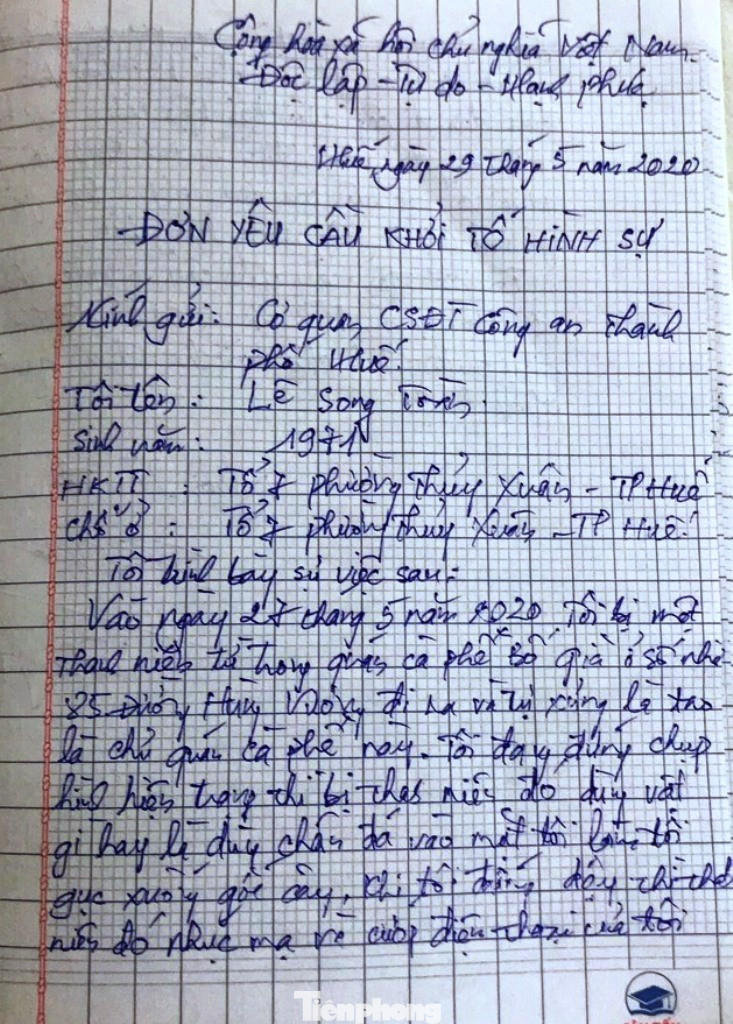 Cộng hòa xã hội chủ nghĩa Việt Nam
Độc lập - Tự do - Hạnh phúc
Huế, ngày 29 tháng 5 năm 2020
ĐƠN YÊU CẦU KHỞI TỐ HÌNH SỰ
Kính gửi: Cơ quan CSĐT Công an thành
phố Huế.
Tôi tên: Lê Song
Sinh năm: 1971
HKTT: Tổ 7 phường Thủy Xuân - TP Huế
Chỗ ở: Tổ 7 phường Thủy Xuân - TP Huế.
Tôi trình bày sự việc sau:
Vào ngày 27 tháng 5 năm 2020. Tôi bị một
thanh niên từ trong quán cà phê Bố già ở số nhà
85 Đường Hùng Vương đi ra và tự xưng là tao
là chủ quán cà phê này. Tôi đang đứng chụp
hình hiện trạng thì bị thanh niên đó dùng vật
gì hay là dùng chân đá vào mặt tôi làm tôi
gục xuống gốc cây. Khi tôi đứng dậy thì thanh
niên đó nhục mạ và cướp điện thoại của tôi
Tiềnphong